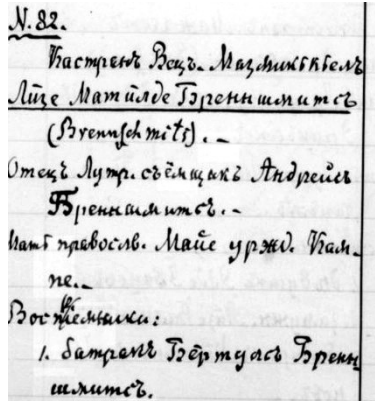 N. 82.
Кастранъ Вец. Мазминккелъ
Лизе Матилде Бренншмитсъ
(Brennschmits). –
Отецъ Лутр. съёмщикъ Андрейсъ
Бренншмитсъ. –
Мать правослв. Майе уржд. Кам-
пе. –
Воспріемники:
1. батракъ Бертулсъ Бренн-
шмитсъ.